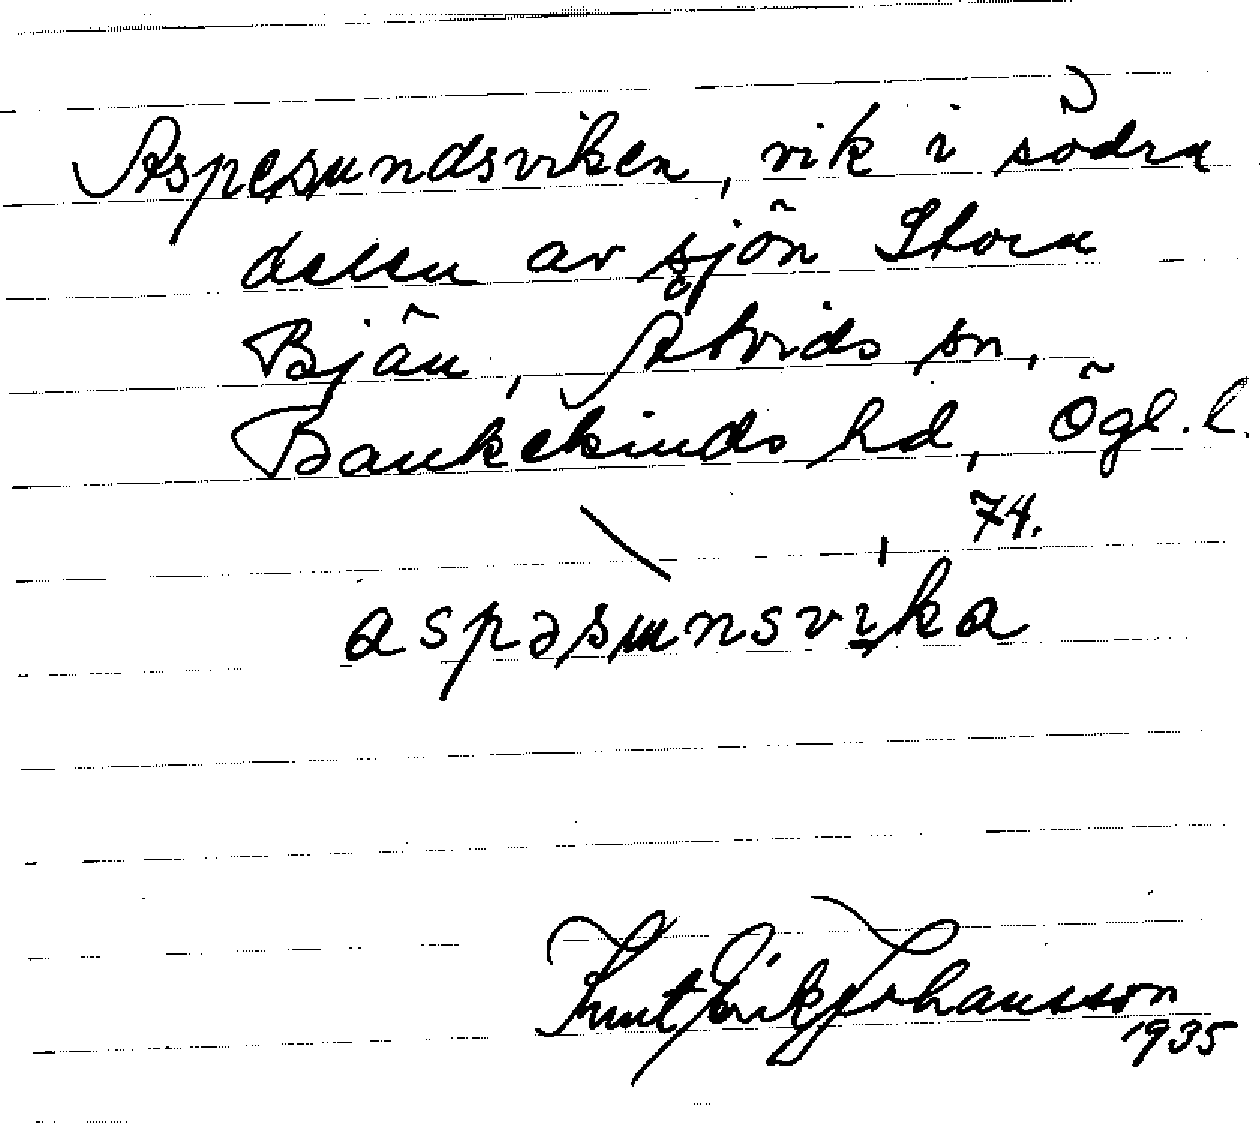 Aspesundsviken, vik i södra
delen av sjön Stora
Bjän, Åtvids sn,
Bankekinds hd, Ögl. l.
74.
aspəsunsvika
Knut Erik Johansson
1935